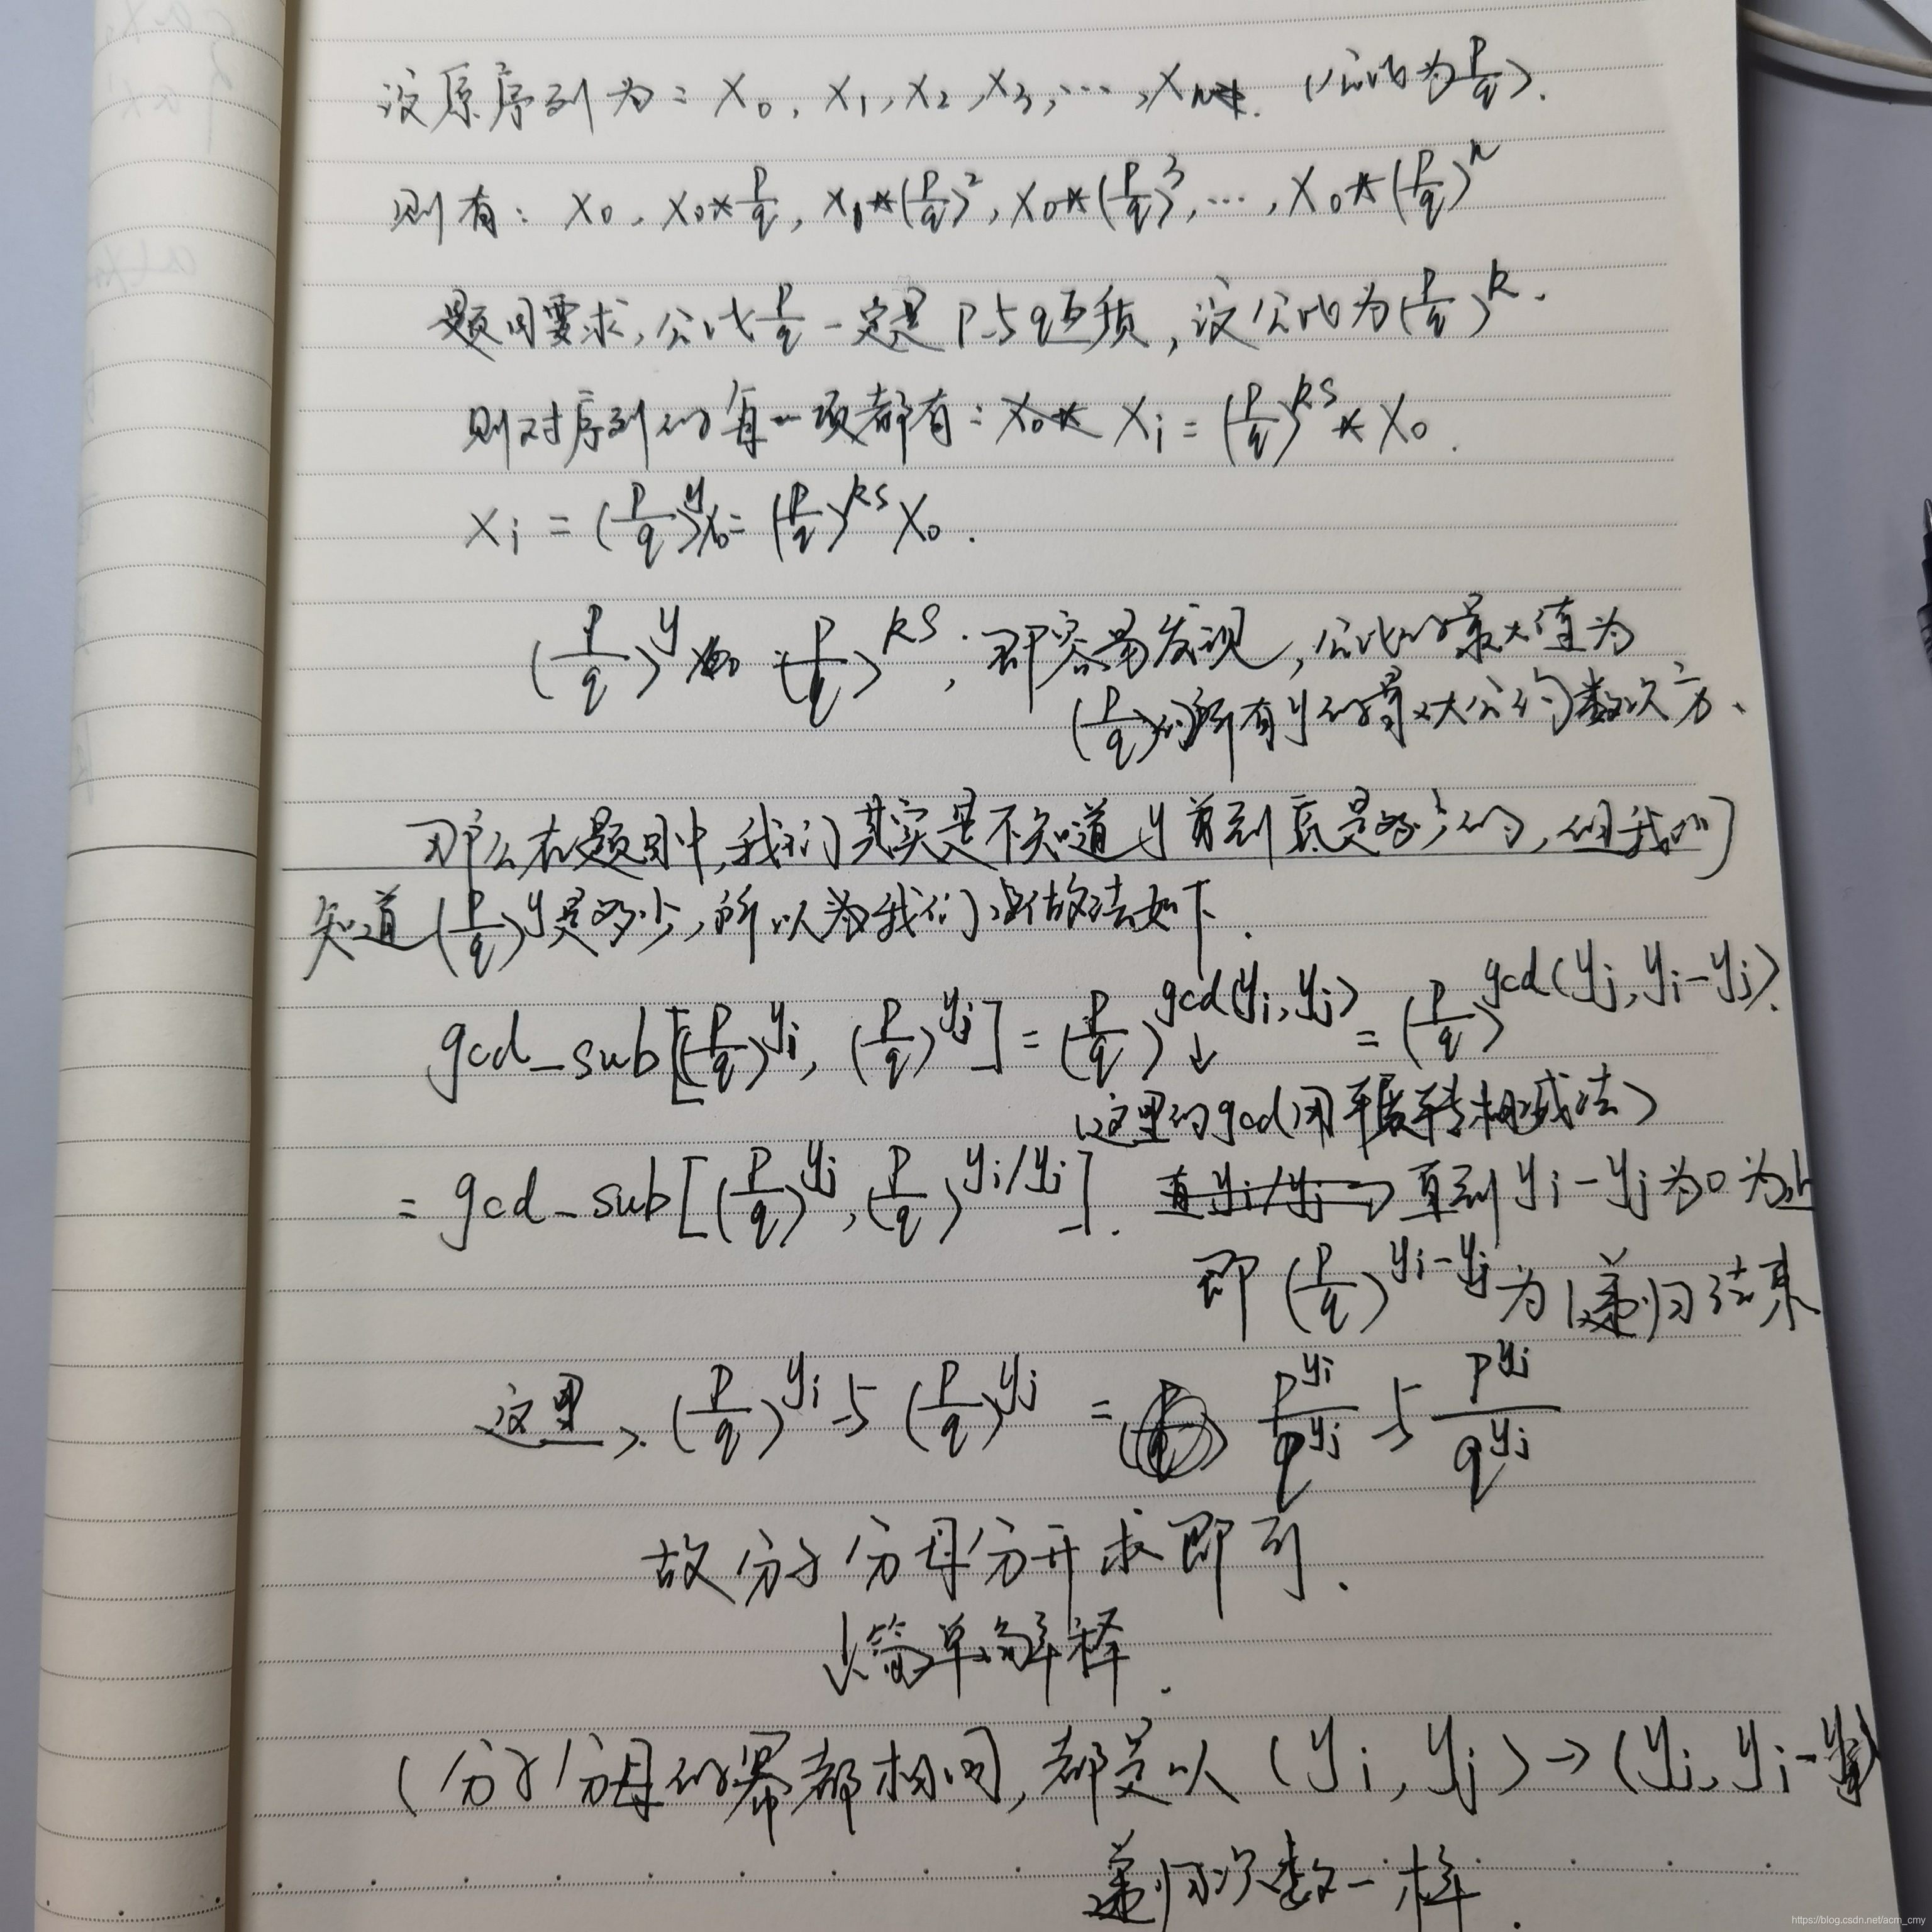 设原序列为: X₀, X₁, X₂, X₃, ⋯, Xₙ. (公比为 p/q).
则有: X₀, X₀*p/q, X₀*(p/q)², X₀*(p/q)³, ⋯, X₀*(p/q)ⁿ
题目要求, 公比 p/q 一定是 p与q互质, 设公比为(p/q)^k.
则对序列的每一项都有: Xᵢ = (p/q)^ks * X₀.
Xᵢ = (p/q)^y X₀ = (p/q)^ks X₀.
(p/q)^y = (p/q)^ks; 即容易发现, 公比的最大值为
(p/q)的所有y的最大公约数次方、
那么在题目中, 我们其实是不知道y到底是多少的, 但我们
知道(p/q)^y是多少, 所以我们做法如下.
gcd_sub[(p/q)^yi, (p/q)^yj] = (p/q)^gcd(yi, yj) = (p/q)^gcd(yj, yi-yj).
↓
(这里的gcd用辗转相减法)
= gcd_sub[(p/q)^yj, (p/q)^yi/yj]. 直到 yi-yj为0为止
即 (p/q)^yi-yj 为1递归结束
这里, (p/q)^yi 与 (p/q)^yj = p^yi/q^yj 与 p^yj/q^yj
故分子分母分开求即可.
↓简单解释.
(分子分母的幂都相同, 都是以 (yi, yj) → (yj, yi-yj)
递归次数一样.
https://blog.csdn.net/acm_cmy